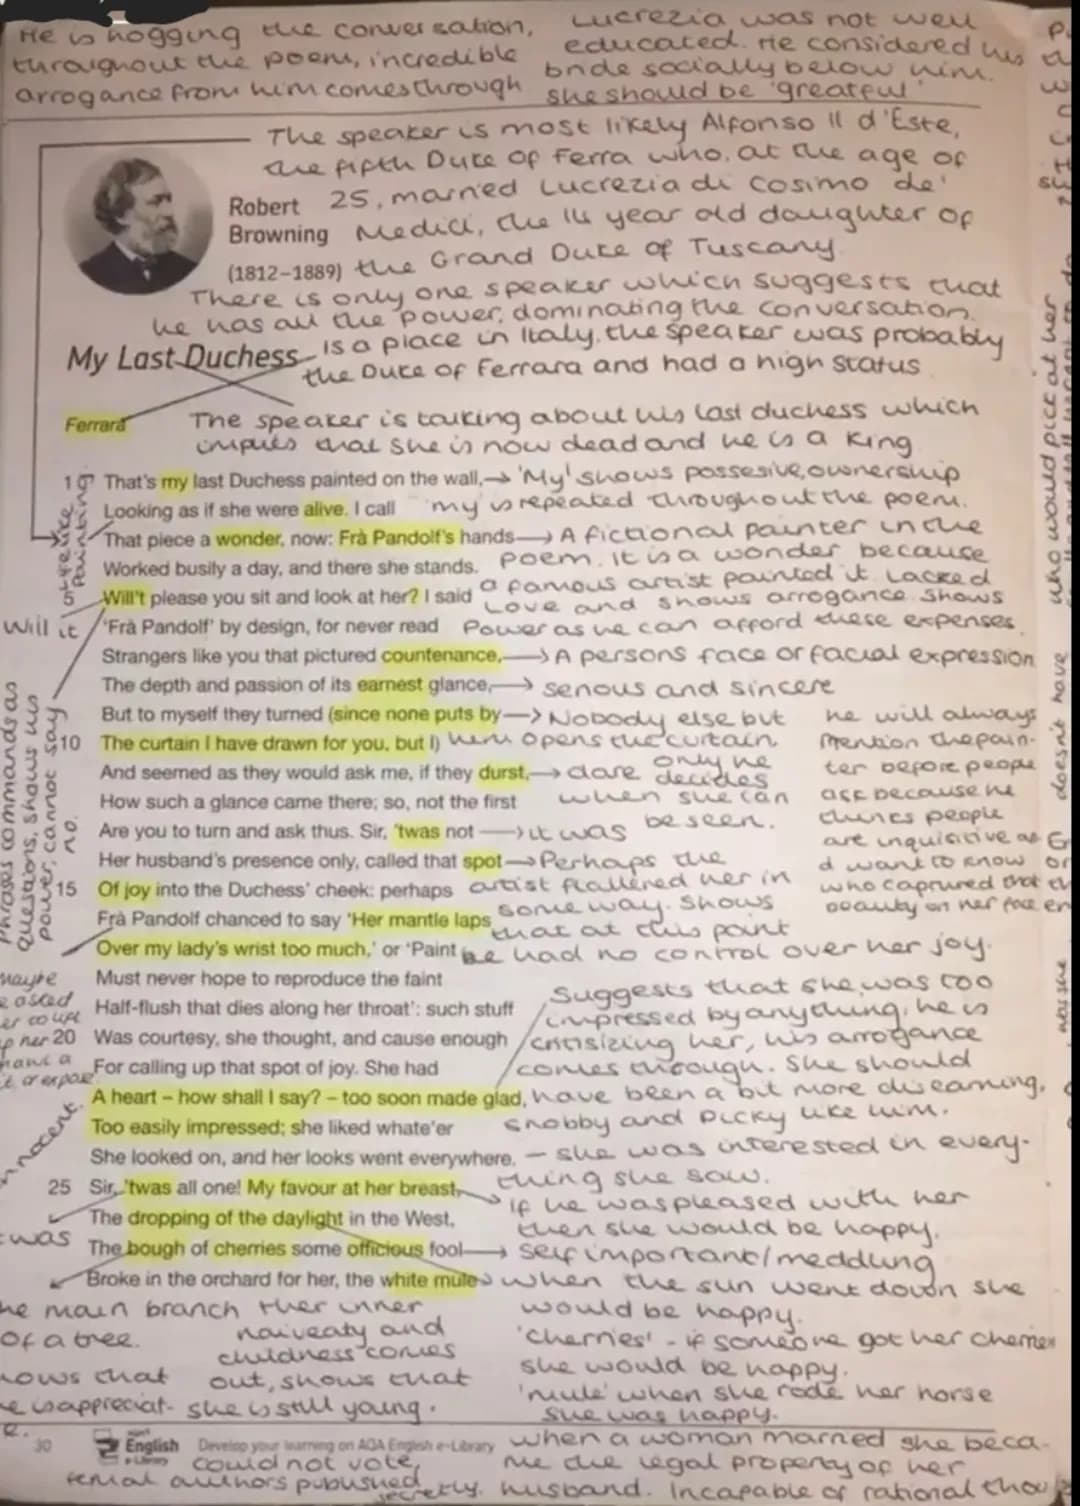 He is hogging the conversation,
throughout the poem, incredible
arrogance from him comes through
Lucrezia was not well
educated. He considered his
bride socially below him.
she should be 'greatful'
The speaker is most likely Alfonso II d'Este,
the fifth Duke of Ferra who, at the age of
25, married Lucrezia di Cosimo de'
Medici, the 14 year old daughter of
the Grand Duke of Tuscany.
Robert
Browning
(1812–1889)
There is only one speaker which suggests that
he has all the power, dominating the conversation.
My Last Duchess
is a place in Italy. the speaker was probably
the Duke of Ferrara and had a high status
Ferrara
The speaker is talking about his last duchess which
implies that she is now dead and he is a King
1 That's my last Duchess painted on the wall, → 'My' shows possesive, ownership
Looking as if she were alive. I call 'my is repeated throughout the poem.
That piece a wonder, now: Frà Pandolf's hands → A fictional painter in the
Worked busily a day, and there she stands. poem. It is a wonder because
a famous artist painted it. Lacked
5 Will't please you sit and look at her? I said Love and shows arrogance. Shows
'Frà Pandolf' by design, for never read Power as he can afford these expenses.
Strangers like you that pictured countenance, → A persons face or facial expression
The depth and passion of its earnest glance, → serious and sincere
But to myself they turned (since none puts by → Nobody else but
10 The curtain I have drawn for you, but I) him opens the curtain.
And seemed as they would ask me, if they durst, → dare only he decides
How such a glance came there; so, not the first when she can
be seen.
Are you to turn and ask thus. Sir, 'twas not → it was
Her husband's presence only, called that spot → Perhaps the
15 Of joy into the Duchess' cheek: perhaps artist flattered her in
Frà Pandolf chanced to say 'Her mantle laps some way. Shows
that at this point
Over my lady's wrist too much,' or 'Paint he had no control over her joy.
Must never hope to reproduce the faint
Half-flush that dies along her throat': such stuff
20 Was courtesy, she thought, and cause enough
For calling up that spot of joy. She had
A heart – how shall I say? – too soon made glad,
Too easily impressed; she liked whate'er
She looked on, and her looks went everywhere.
25 Sir, 'twas all one! My favour at her breast,
The dropping of the daylight in the West,
The bough of cherries some officious fool
Broke in the orchard for her, the white mule
he will always
mention the pain-
ter before people
ask because he
thinks people
are inquisitive
want to know
who captured that
beauty on her face
Suggests that she was too
impressed by anything, he is
critisizing her, his arrogance
comes through. She should
have been a bit more discerning,
snobby and picky like him.
– she was interested in every-
thing she saw.
If he was pleased with her
then she would be happy.
self important/meddling
when the sun went down she
would be happy.
'cherries' - if someone got her cherries
she would be happy.
'mule' when she rode her horse
she was happy.
still like
Painting
Will it
Phrases commands as
questions, shows his
power, cannot say
no.
maybe
asked
innocent.
was
main branch
of a tree.
her inner
naiveaty and
childness comes
out, shows that
she is still young.
who would pick at her
doesn't have
30 English Develop your learning on AQA English e-Library
could not vote,
published secretly.
when a woman married she beca-
me the legal property of her
husband. Incapable of rational